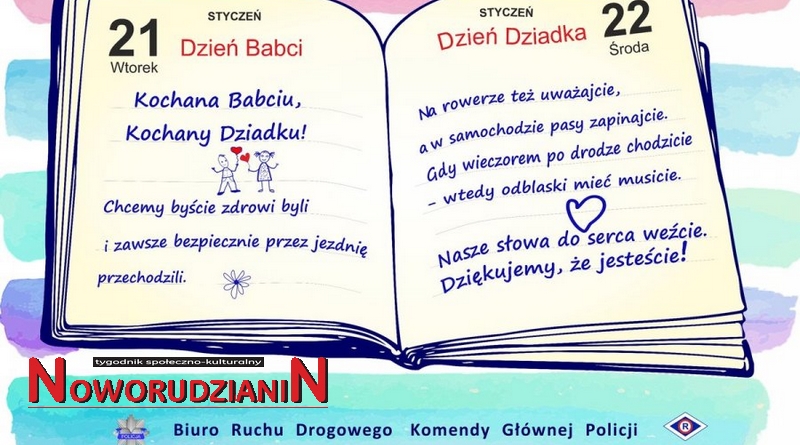 STYCZEŃ
21
Dzień Babci
Wtorek
Kochana Babciu,
Kochany Dziadku!
Chcemy byście zdrowi byli
i zawsze bezpiecznie przez jezdnię
przechodzili.
STYCZEŃ
22
Dzień Dziadka
Środa
Na rowerze też uważajcie,
a w samochodzie pasy zapinajcie.
Gdy wieczorem po drodze chodzicie
– wtedy odblaski mieć musicie.
Nasze słowa do serca weźcie.
Dziękujemy, że jesteście!
tygodnik społeczno-kulturalny
NOWORUDZIANIN
POLICJA
Biuro Ruchu Drogowego Komendy Głównej Policji
R